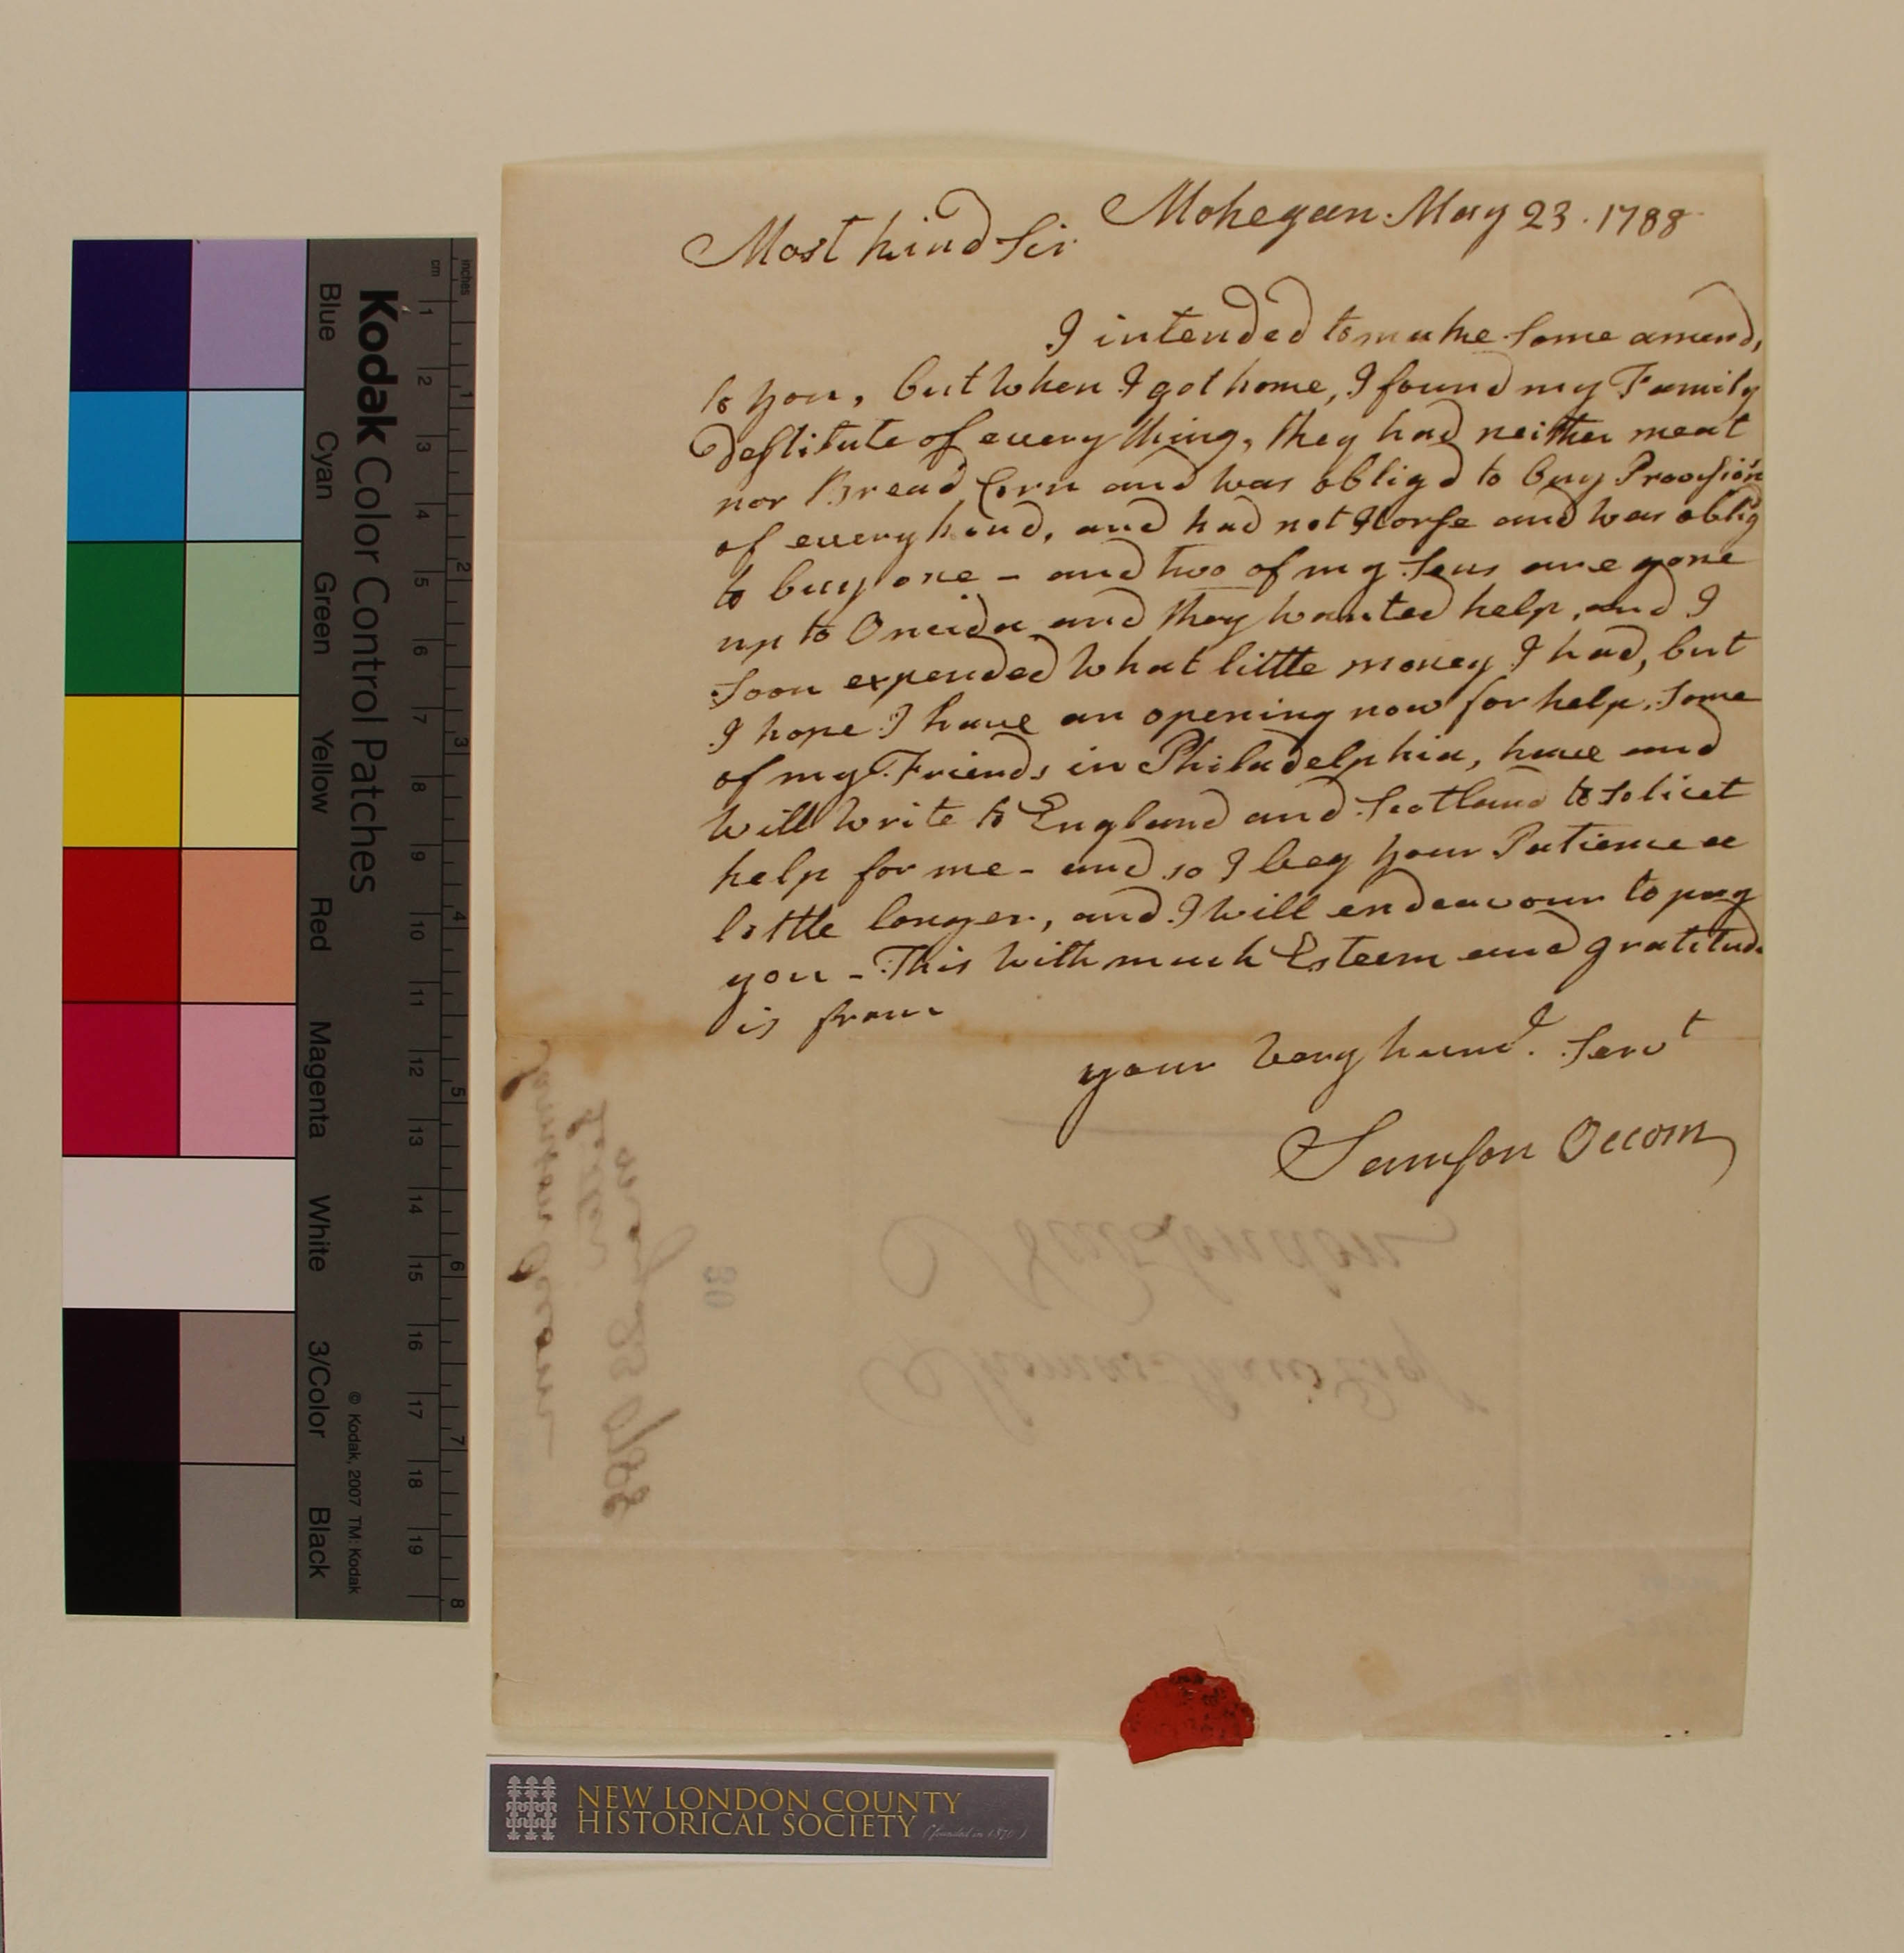 Mohegan May 23. 1788
Most kind Sir
I intended to make Some amend,
to you, but when I got home, I found my Family
Destitute of every thing, they had neither meat
nor Bread Corn and was obligd to buy Provision
of every kind, and had not Horse and was oblig
to buy one - and two of my Sons are gone
up to Oneida and they wanted help, and I
Soon expended what little money I had, but
I hope I have an opening now for help, Some
of my Friends in Philadelphia, have and
will write to England and Scotland to Solicet
help for me - and so I beg your Patience a
little longer, and I will endeavour to pay
you - This with much Esteem and gratitude
is from
your very hum.l Servt
Samson Occom
New London
Thomas Shaw Esqr
30
Kodak Color Control Patches
Blue Cyan Green Yellow Red Magenta White 3/Color Black
© Kodak, 2007 TM: Kodak
cm 1 2 3 4 5 6 7 8 9 10 11 12 13 14 15 16 17 18 19
inches 1 2 3 4 5 6 7 8
NEW LONDON COUNTY
HISTORICAL SOCIETY (founded in 1870)